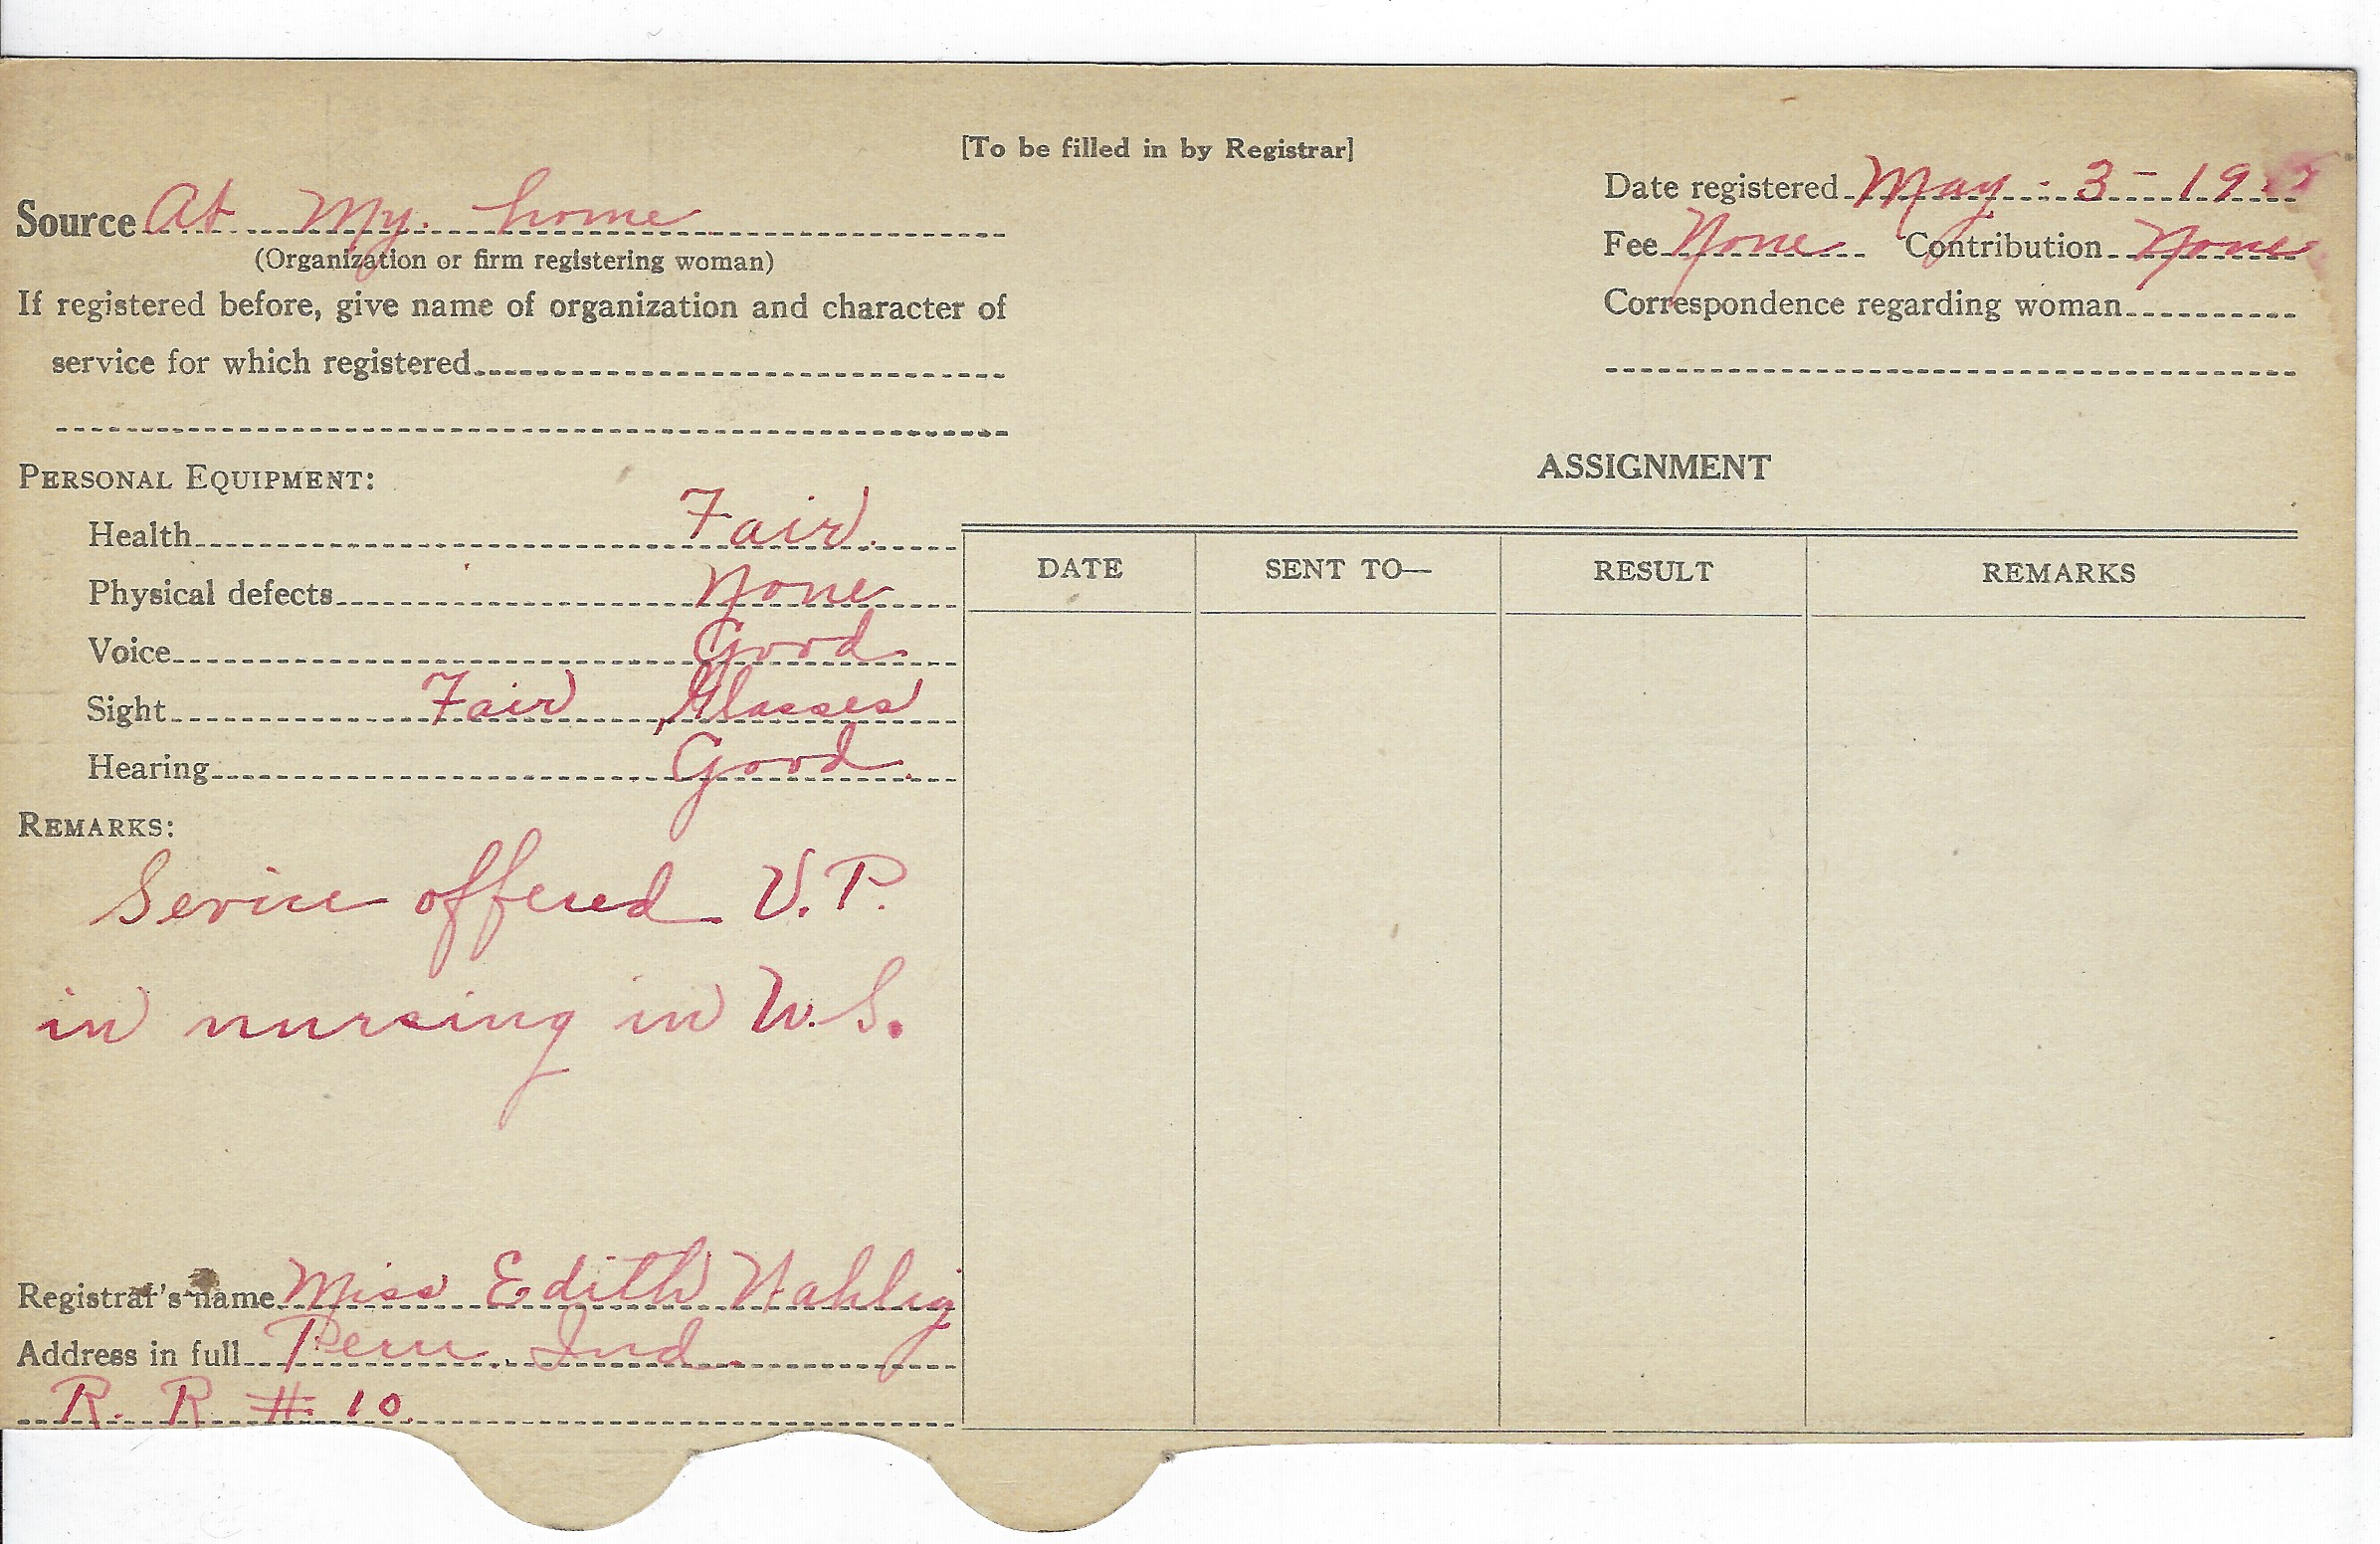 [To be filled in by Registrar]
Source At My. home
(Organization or firm registering woman)
If registered before, give name of organization and character of
service for which registered
Date registered May - 3 - 19
Fee None Contribution None
Correspondence regarding woman
PERSONAL EQUIPMENT:
Health Fair.
Physical defects None
Voice Good.
Sight Fair, Glasses
Hearing Good.
REMARKS:
Service offered V.P.
in nursing in W.S.
Registrar's name Miss Edith Wahlig
Address in full Peru, Ind.
R. R # 10.
ASSIGNMENT
DATE SENT TO— RESULT REMARKS